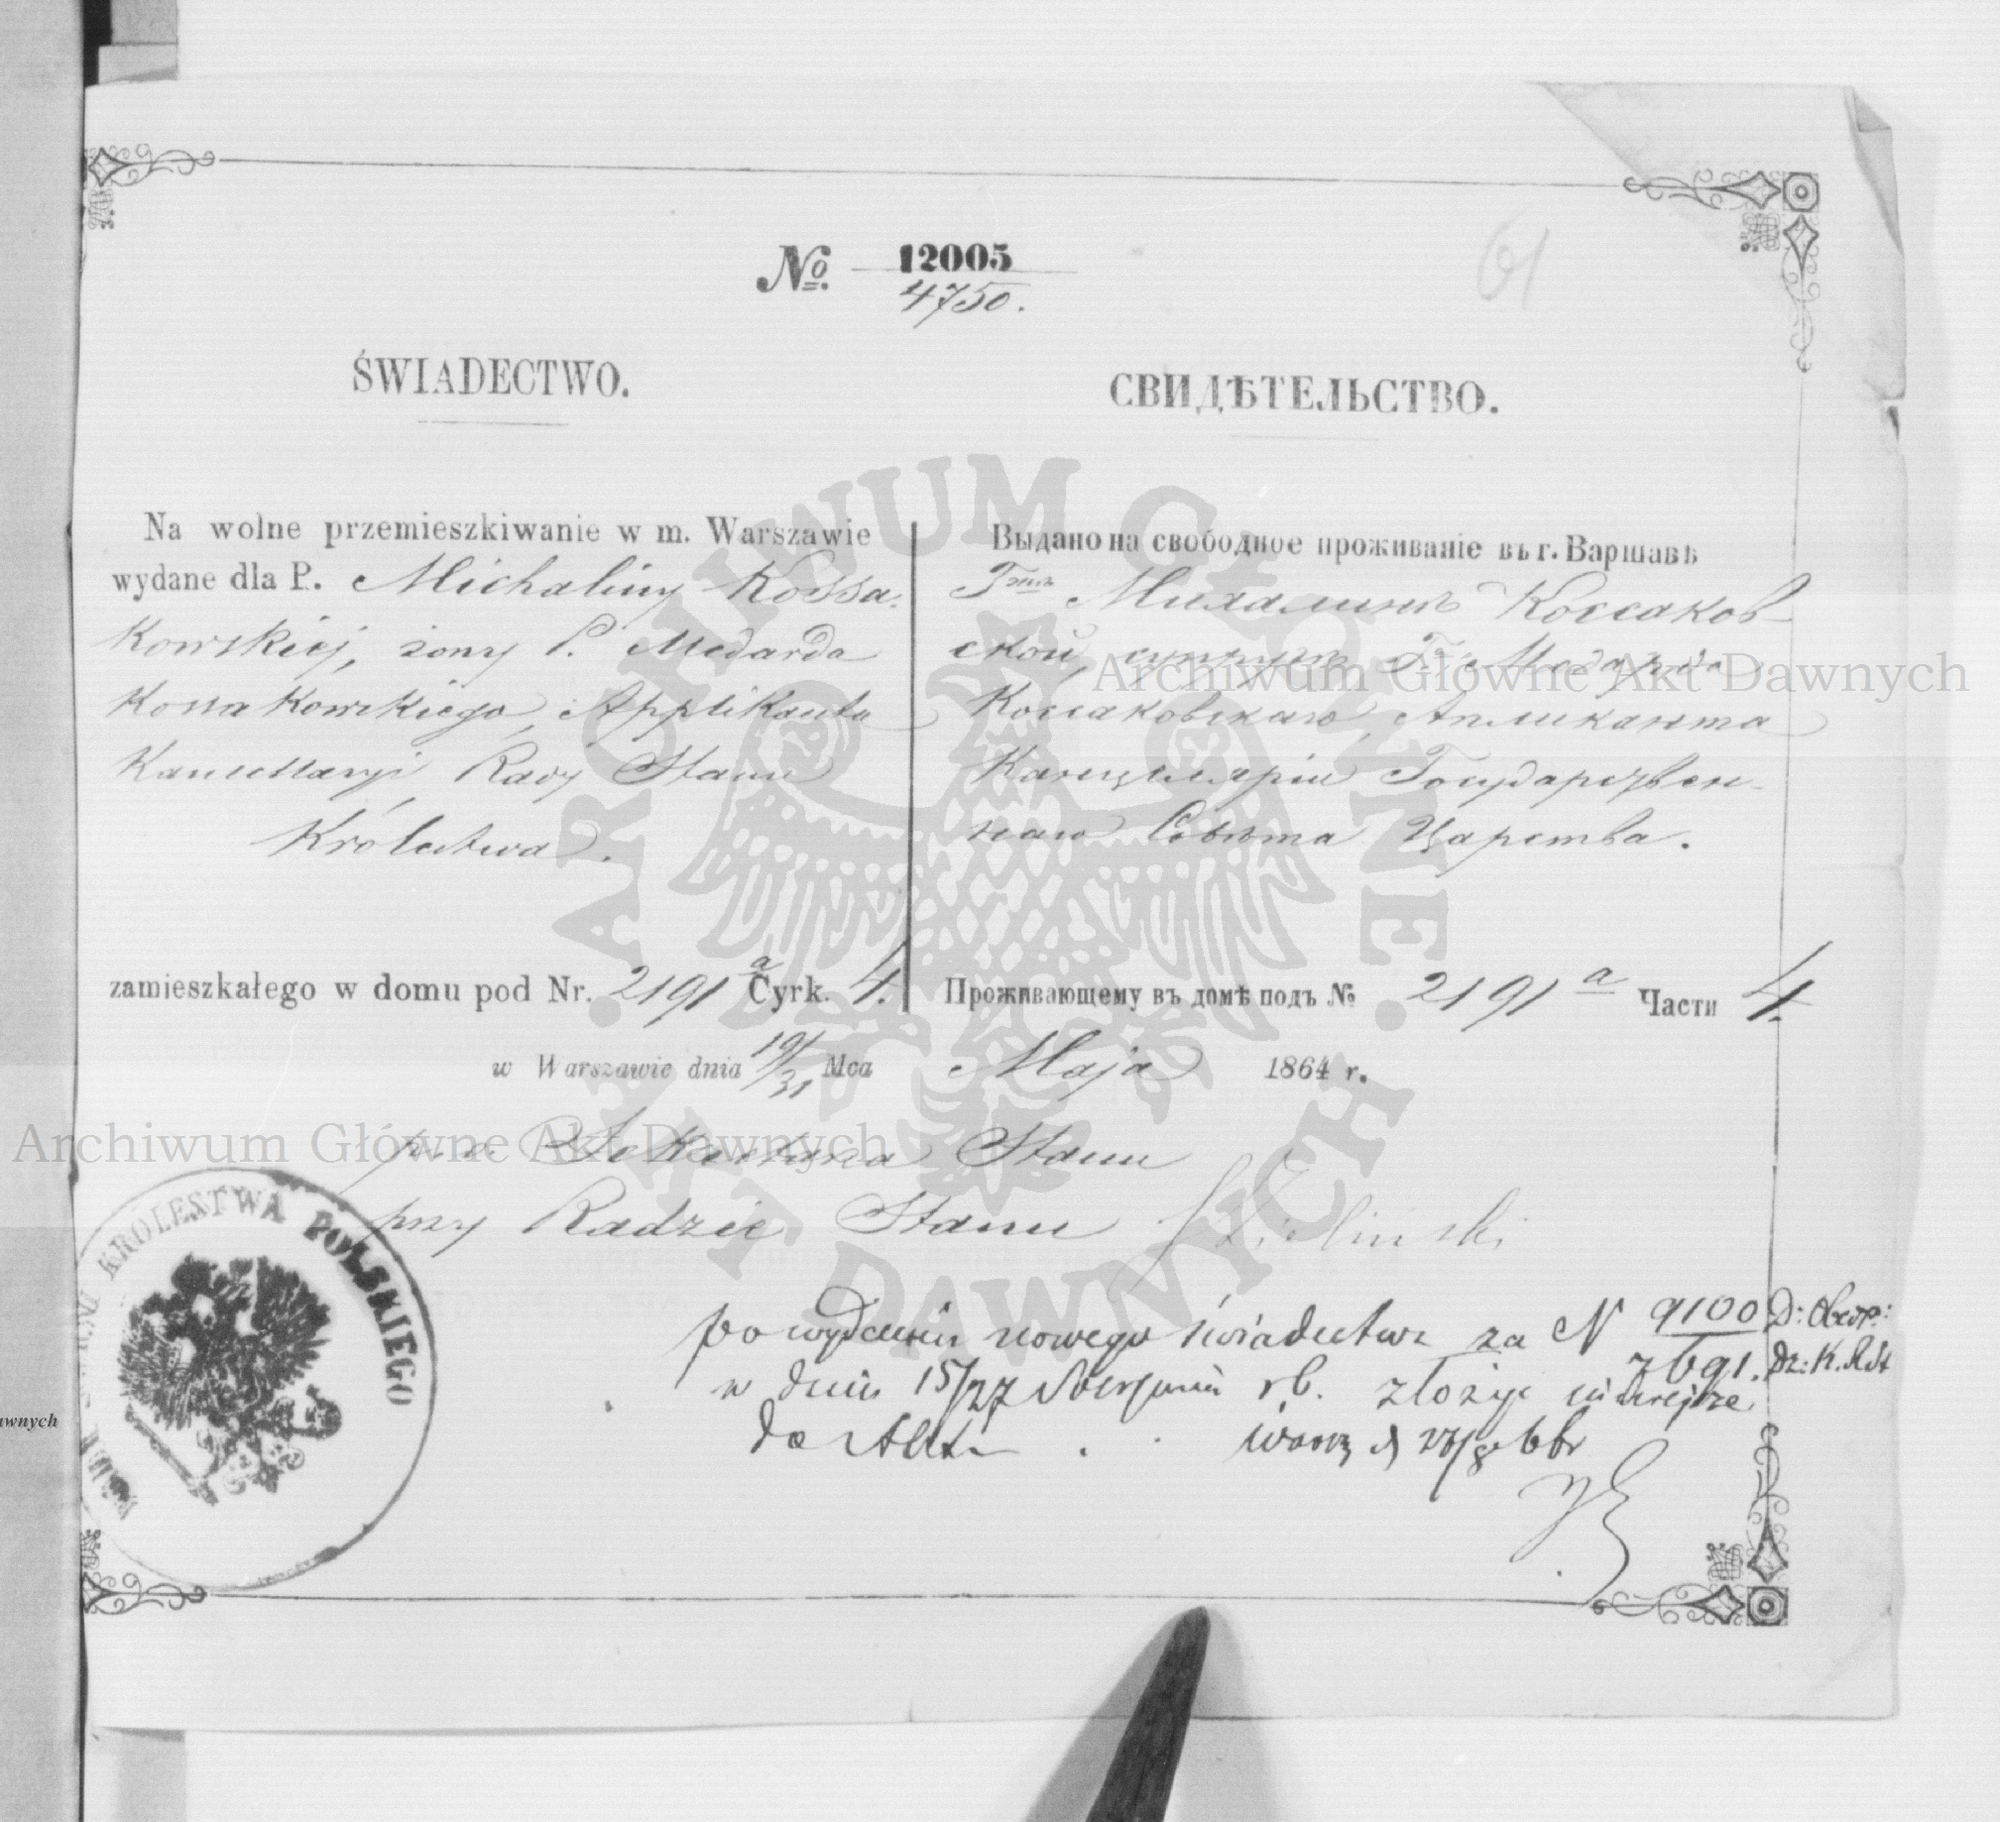 61
№ 12005
4750.
ŚWIADECTWO.
Na wolne przemieszkiwanie w m. Warszawie
wydane dla P. Michaliny Kossa-
kowskiej, żony P. Medarda
Kossakowskiego, Applikanta
Kancellaryi Rady Stanu
Królestwa.
zamieszkałego w domu pod Nr. 2191 a Cyrk. 4.
СВИДѢТЕЛЬСТВО.
Выдано на свободное проживаніе въ г. Варшавѣ
Г-жѣ Михалинѣ Коссаков-
ской, супругѣ Г. Медарда
Коссаковскаго, Апликанта
Канцеляріи Государствен-
наго Совѣта Царства.
Проживающему въ домѣ подъ № 2191 a Части 4.
w Warszawie dnia 19/31 Mca Maja 1864 r.
p. o. Sekretarza Stanu
przy Radzie Stanu
po wydaniu nowego świadectwa za N 9100 D:
7691. Dz: K. R St
w dniu 15/27 Sierpnia rb. złożyć niniejsze
do Akt
KRÓLESTWA POLSKIEGO
Archiwum Główne Akt Dawnych
Archiwum Główne Akt Dawnych
ARCHIWUM GŁÓWNE AKT DAWNYCH
awnych